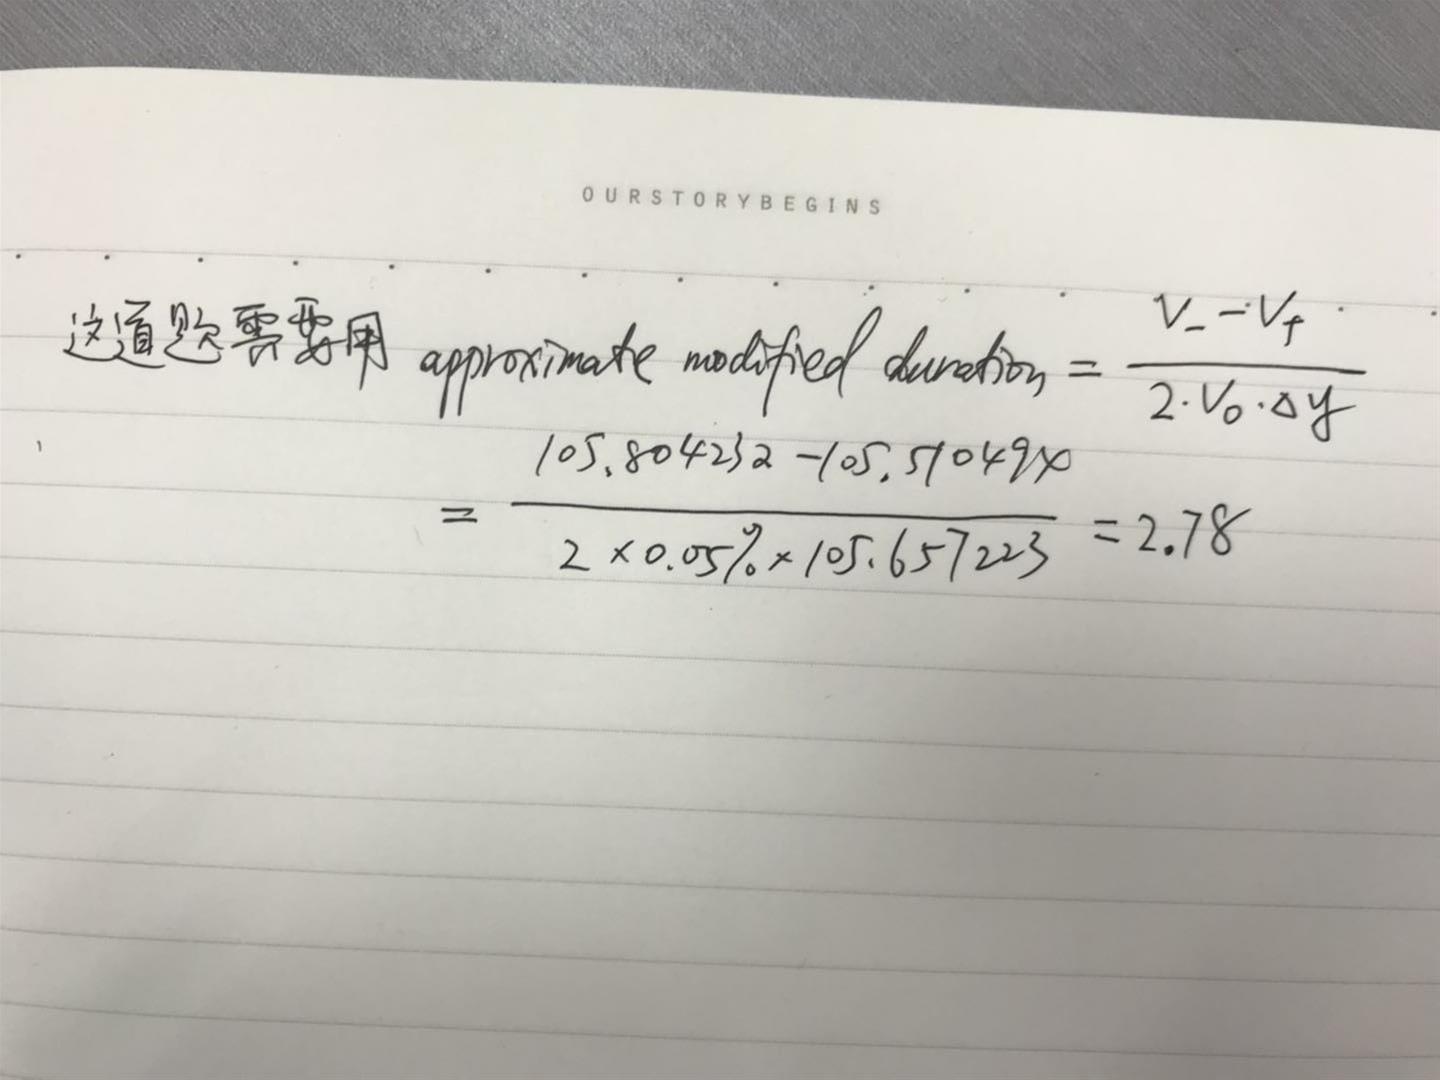 OURSTORYBEGINS
这道题需要用 approximate modified duration = \frac{V_- - V_+}{2·V_0·Δy}
= \frac{105.804232 - 105.510494}{2×0.05%×105.657223} = 2.78